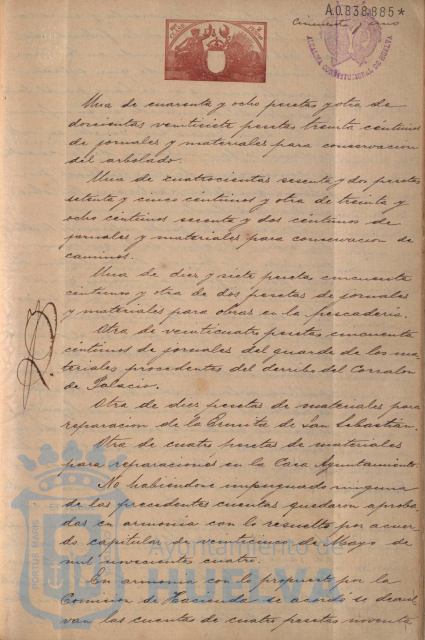 A.0.838,885*
Cincuenta y uno
ALCALDIA CONSTITUCIONAL DE HUELVA
Una de cuarenta y ocho pesetas y otra de
doscientas veintisiete pesetas treinta céntimos
de jornales y materiales para conservacion
del arbolado.
Una de cuatrocientas sesenta y dos pesetas
setenta y cinco céntimos y otra de treinta y
ocho céntimos sesenta y dos céntimos de
jornales y materiales para conservacion de
caminos.
Una de diez y siete pesetas cincuenta
centimos y otra de dos pesetas de jornales
y materiales para obras en la pescaderia.
Otra de veinticuatro pesetas cincuenta
céntimos de jornales del guarda de los ma
teriales procedentes del derribo del Corralon
de Palacio.
Otra de diez pesetas de materiales para
reparacion de la Ermita de San Sebastián.
Otra de cuatro pesetas de materiales
para reparaciones en la Casa Ayuntamiento.
No habiéndose impugnado ninguna
de las precedentes cuentas quedaron aproba
das en armonia con lo resuelto por acuer
do capitular de veinticinco de Mayo de
mil novecientos cuatro.
En armonia con lo propuesto por la
Comision de Hacienda se acordó se devuel
van las cuentas de cuatro pesetas noventa
Ayuntamiento de
HUELVA
PORTUS MARIS